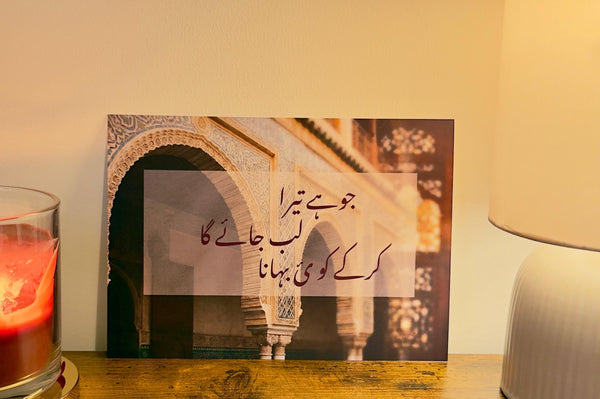 جو ہے تیرا
لب جائے گا
کرکے کوئ بہانا